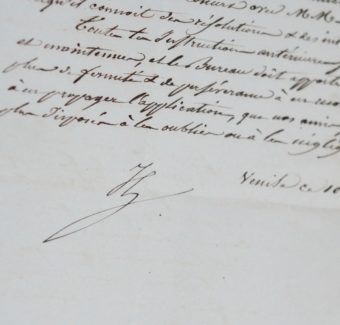 qu'il connoit des résolutions & des in
Toutes les Instructions antérieures
et maintenues, et le Bureau doit apporte
plus de fermeté & de perseverance à en
à en propager l'application, que nos
plus disposés à les oublier ou à les néglig
H
Venise ce 10